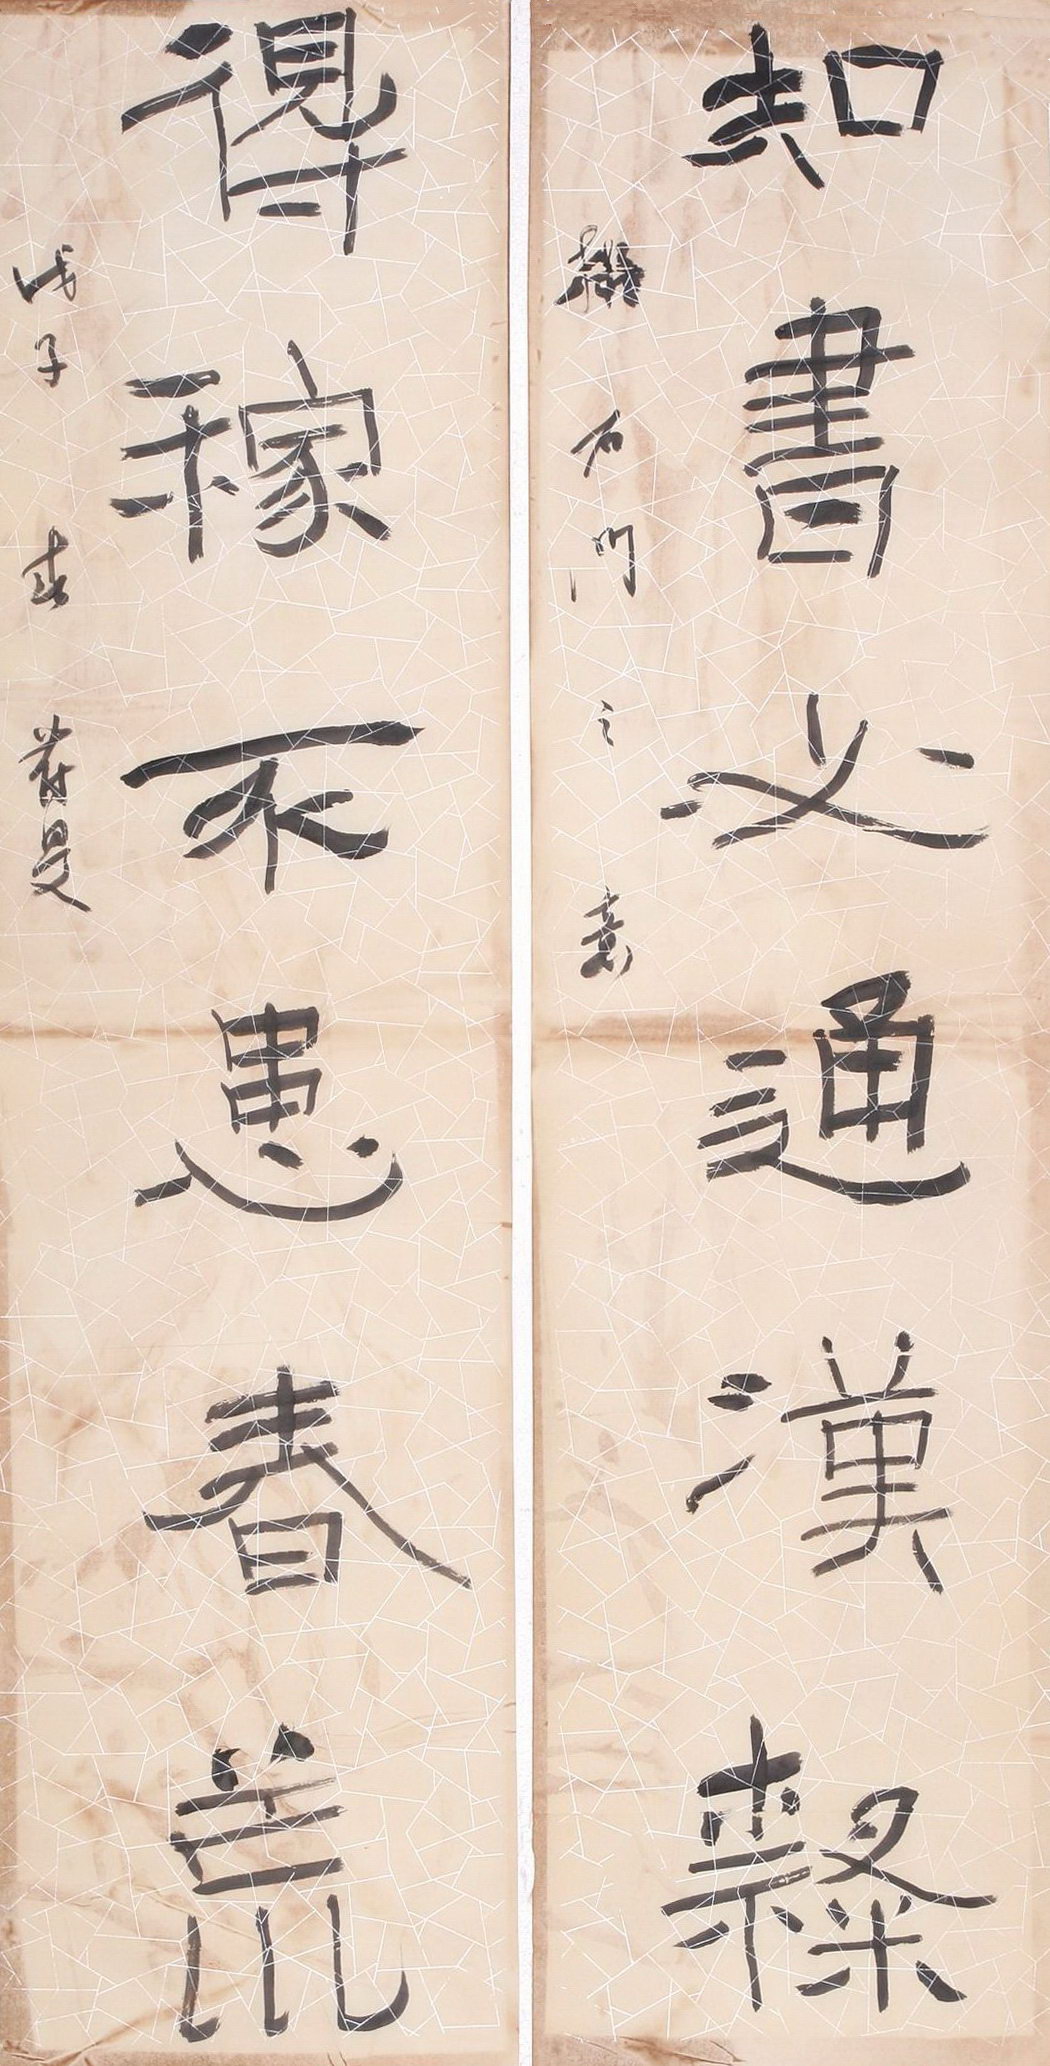 知書必通漢隸
撫石門之意
得稼不患春荒
戊子春